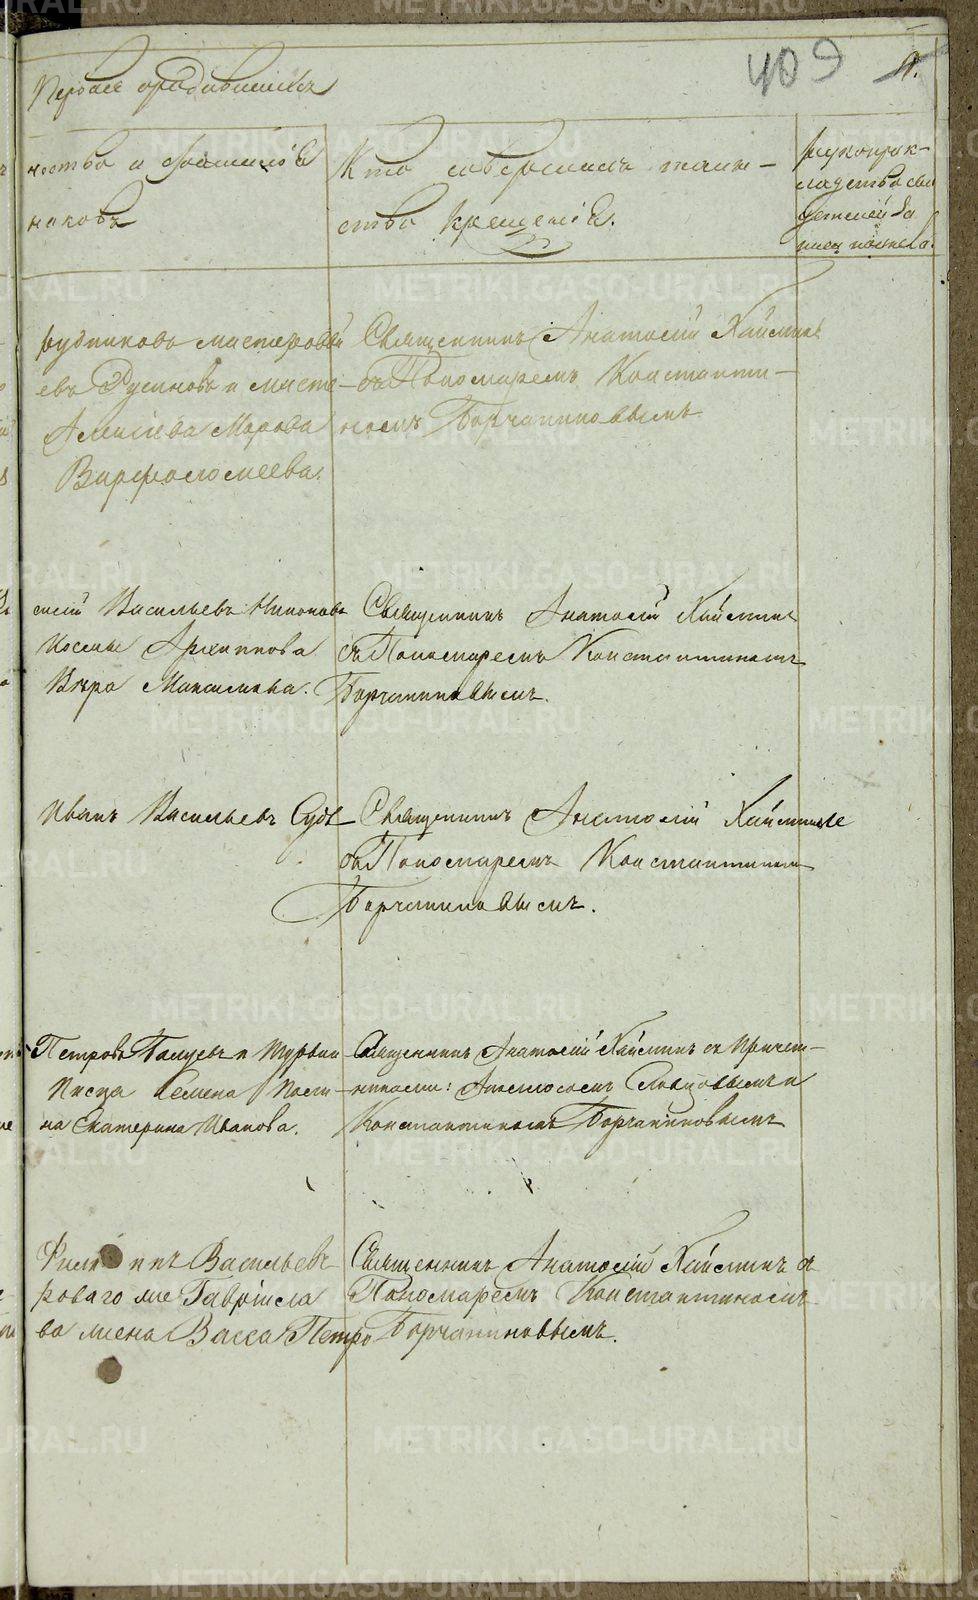 409
Первая о родившихся
Кто совершилъ таин-
ство крещенiя.
рукоприк-
ладство сви
детелей за
писи
рудниковъ мастеровый
евъ Русиновъ и масте-
Марѳа
Варфоломеева.
Священникъ Анатолiй Хаймин
съ Пономаремъ Константи-
номъ Борчаниновымъ
Васильевъ
Архипова
Вѣра Максимова.
Священникъ Анатолiй Хаймин
съ Пономаремъ Константиномъ
Борчаниновымъ.
Иванъ Васильевъ
Священникъ Анатолiй Хаймин
съ Пономаремъ Константином
Борчаниновымъ.
Петровъ и
Писца Семена
на Екатерина Иванова.
Священникъ Анатолiй Хайминъ съ Причет-
никами: и
Константиномъ Борчаниновымъ
Филиппъ Васильевъ
роваго Гаврiила
ва жена Васса Петро
Священникъ Анатолiй Хайминъ съ
Пономаремъ Константиномъ
Борчаниновымъ.
METRIKI.GASO-URAL.RU